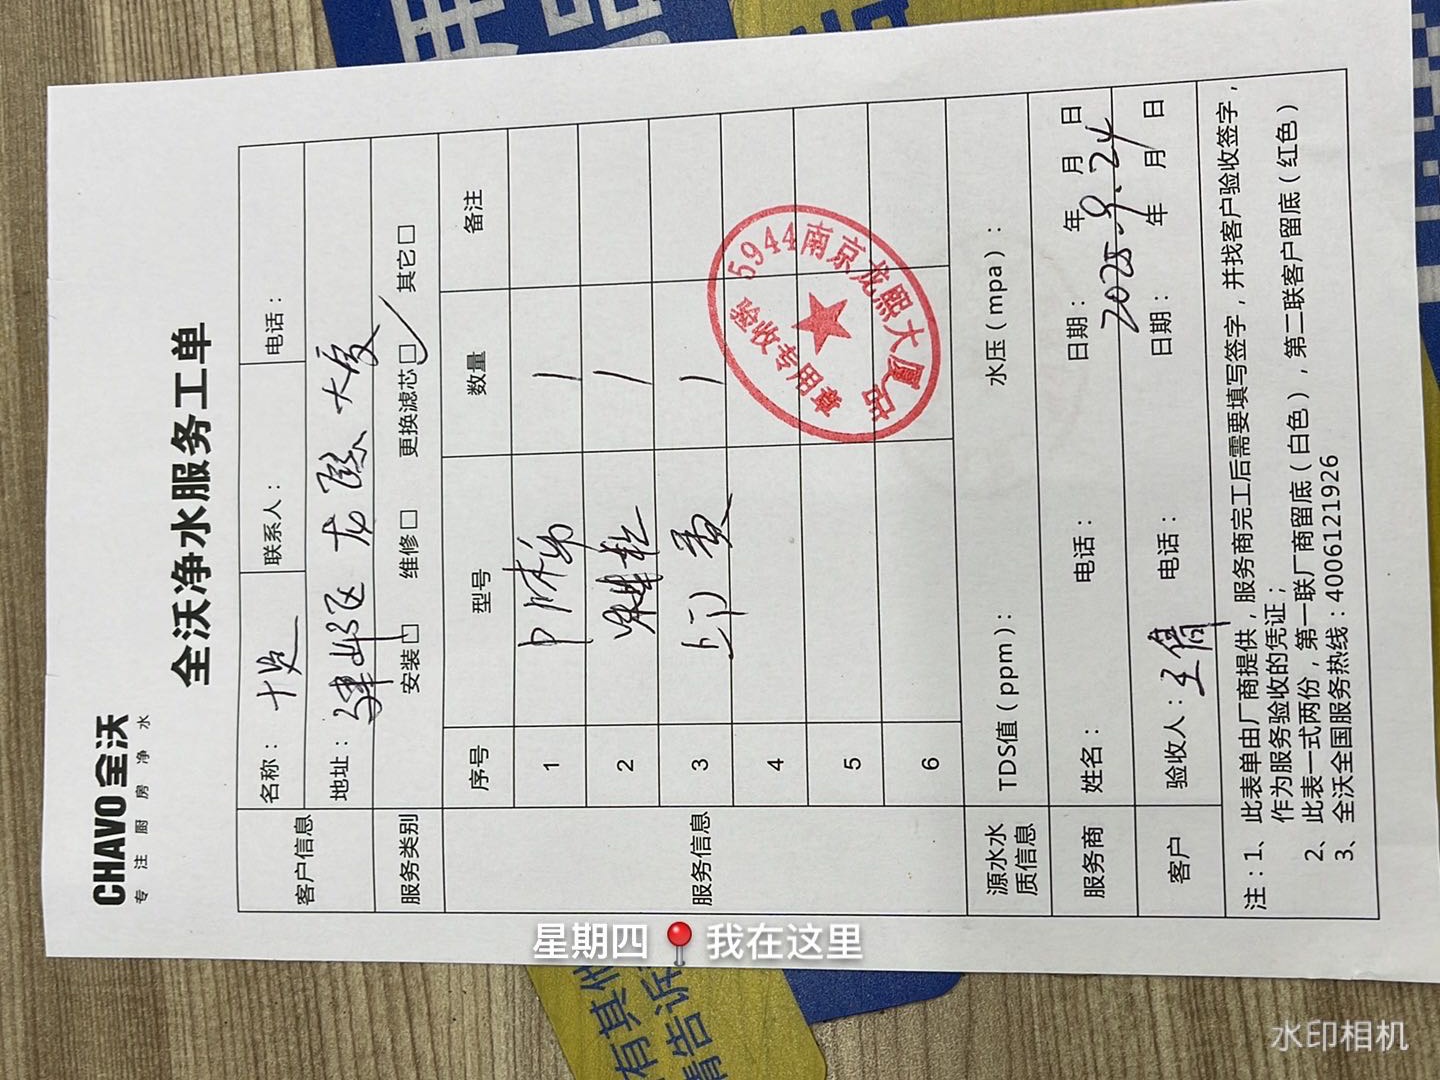 CHAVO全沃
专注厨房净水
全沃净水服务工单
客户信息
名称： 十足
联系人：
电话：
地址：建邺区龙熙大厦
服务类别
安装□ 维修□ 更换滤芯□✓ 其它□
服务信息
序号 型号 数量 备注
1 1
2 1
3 上门费 1
4
5
6
5944南京龙熙大厦店
验收专用章
源水水质信息
TDS值（ppm）： 水压（mpa）：
服务商
姓名： 电话： 日期： 年 月 日
2025.9.24
客户
验收人： 电话： 日期： 年 月 日
注：1、此表单由厂商提供，服务商完工后需要填写签字，并找客户验收签字，
作为服务验收的凭证；
2、此表一式两份，第一联厂商留底（白色），第二联客户留底（红色）
3、全沃全国服务热线：4006121926
星期四📍我在这里
有其他
请告诉
水印相机